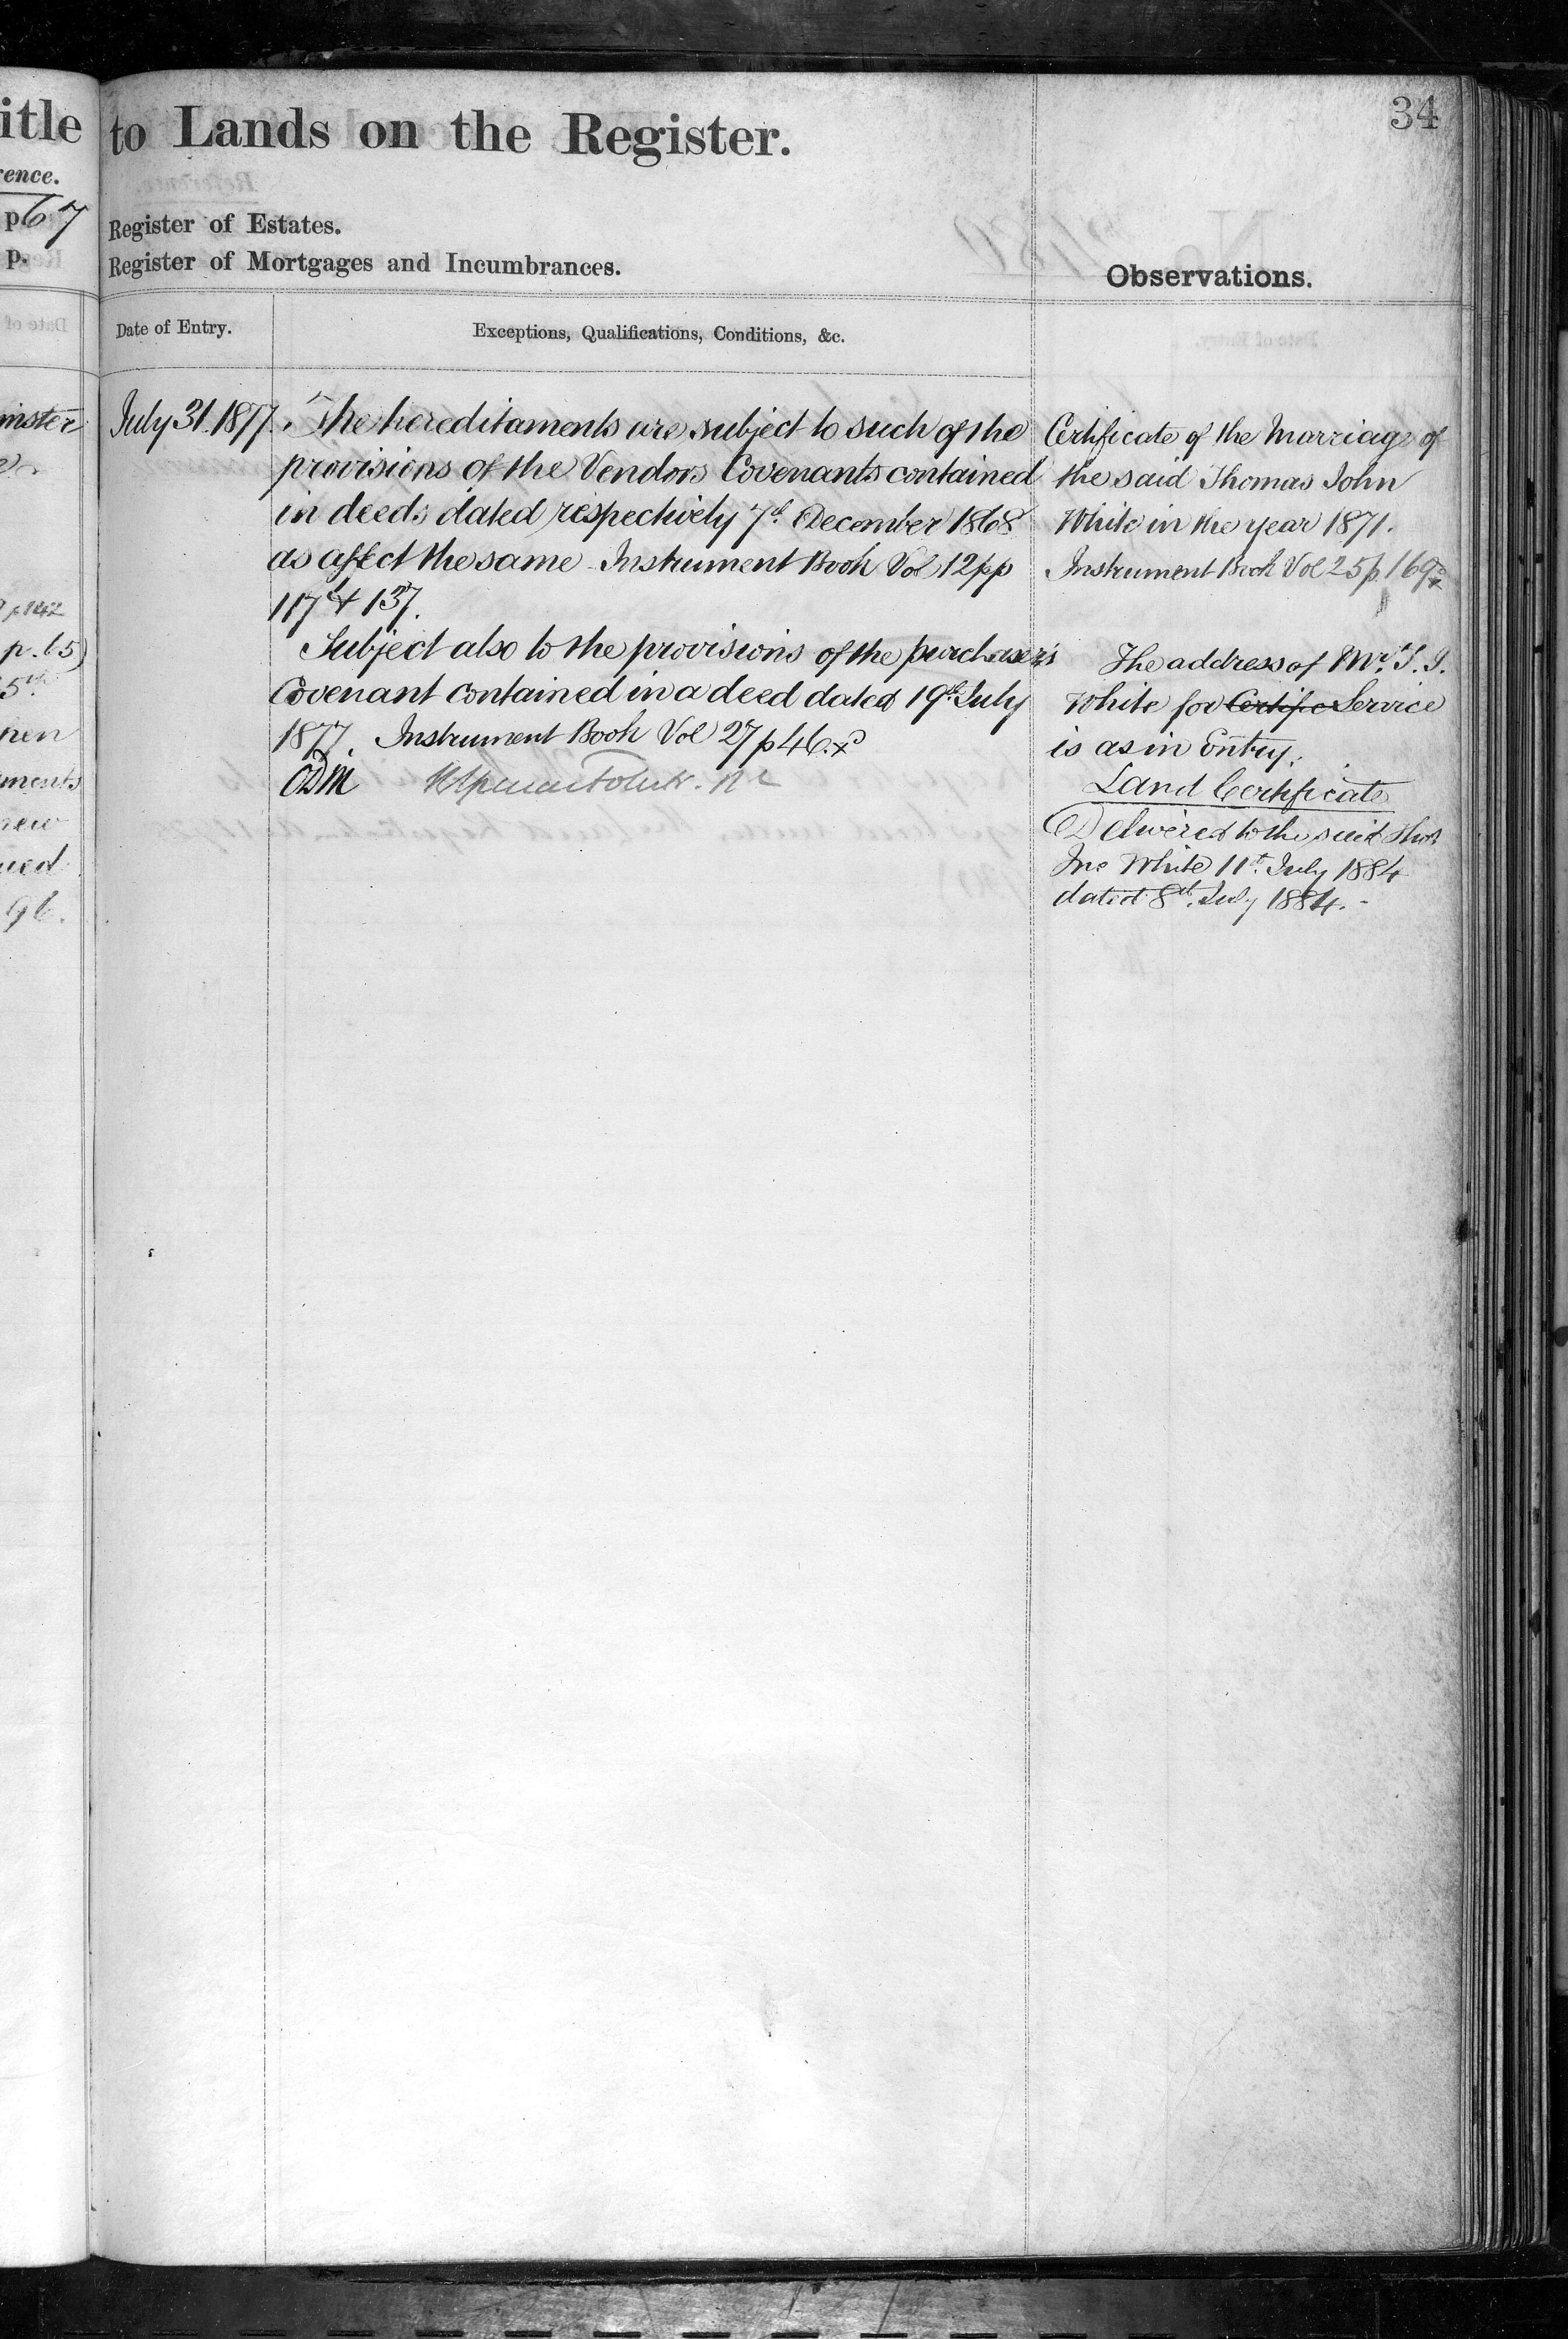 itle
rence.
p 67
p.
p. 142
p. 65)
5th
ments
new
96.
34
to Lands on the Register.
Register of Estates.
Register of Mortgages and Incumbrances.
Observations.
Date of Entry.
Exceptions, Qualifications, Conditions, &c.
July 31. 1877.
The hereditaments are subject to such of the
provisions of the Vendors Covenants contained
in deeds dated respectively 7th December 1868
as affect the same - Instrument Book Vol 12 pp
117 & 137.
Subject also to the provisions of the purchaser's
Covenant contained in a deed dated 19th July
1877. Instrument Book Vol 27 p 46.
Certificate of the Marriage of
the said Thomas John
White in the year 1871.
Instrument Book Vol 25 p 169
The address of Mr. T. J.
White for Certific Service
is as in Entry.
Land Certificate
Delivered to the said Thos
Jno White 11th July 1884
dated 8th July 1884. -